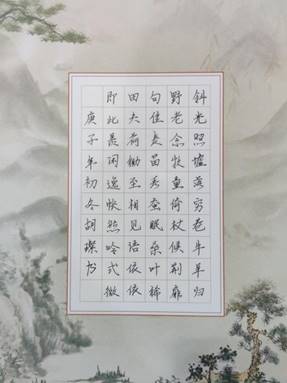 斜光照墟落穷巷牛羊归
野老念牧童倚杖候荆扉
句佳麦苗秀蚕眠桑叶稀
田夫荷锄至相见语依依
即此羡闲逸怅然吟式微
庚子年初冬胡璨书